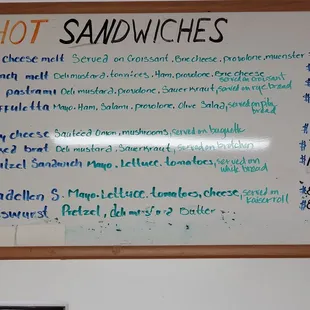 HOT SANDWICHES
cheese melt Served on Croissant, Brie cheese, provolone, muenster
melt Deli mustard, tomatoes, Ham, provolone, Brie cheese served on croissant
pastrami Deli mustard, provolone, Sauerkraut, served on rye bread
uffuletta Mayo, Ham, Salami, provolone, Olive Salad, served on pita bread
y cheese Sauteed Onion, mushrooms, served on baguette
Brat Deli mustard, Sauerkraut, served on
Sandwich Mayo, Lettuce, tomatoes, served on white bread
adellen S. Mayo, Lettuce, tomatoes, cheese, served on kaiser roll
swurst Pretzel, deli mustard Butter